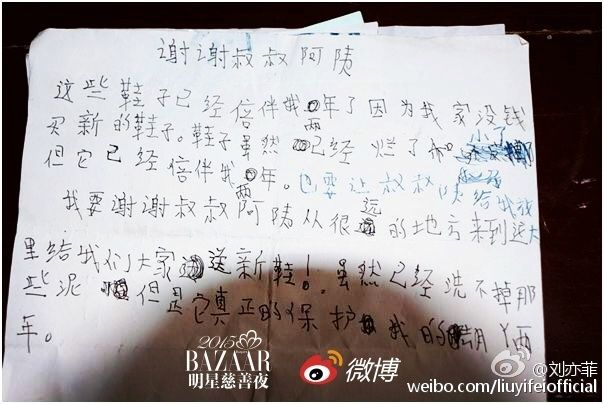 谢谢叔叔阿姨
这些鞋子已经倍伴我两年了因为我家没钱
买新的鞋子。鞋子虽然已经烂了和小了
但它已经倍伴我两年。也要让叔叔
我要谢谢叔叔阿姨从很远的地方来到这大
里给我们大家送新鞋!虽然已经洗不掉那
些泥但是它真正的保护我的丫两
年。
2015
BAZAAR
明星慈善夜
微博
@刘亦菲
weibo.com/liuyifeiofficial